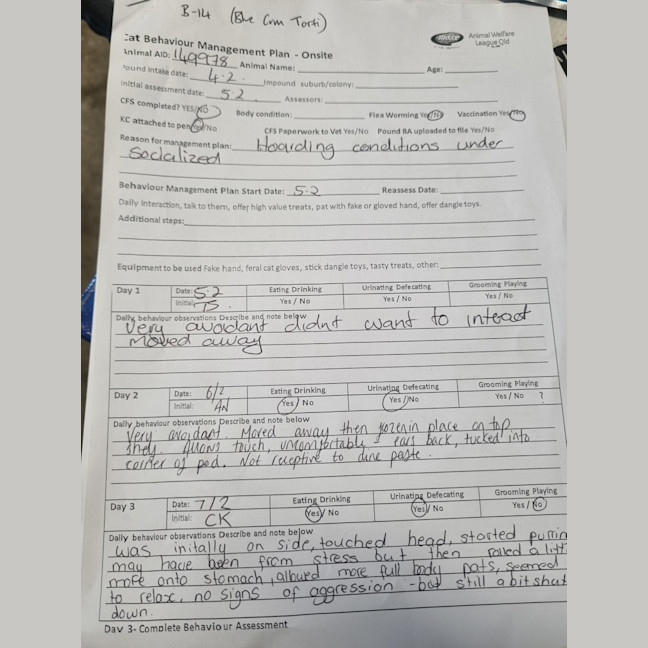 B-14 (Blue Crm Torti)
Cat Behaviour Management Plan - Onsite
Animal Welfare
League Qld
Animal AID: 149978 Animal Name: Age:
Pound Intake date: 4.2. Impound suburb/colony:
Initial assessment date: 5.2 Assessors:
CFS completed? YES/NO Body condition: Flea Worming Yes/No Vaccination Yes/No
KC attached to pen Yes/No CFS Paperwork to Vet Yes/No Pound BA uploaded to file Yes/No
Reason for management plan: Hoarding conditions under
Socialized
Behaviour Management Plan Start Date: 5-2 Reassess Date:
Daily Interaction, talk to them, offer high value treats, pat with fake or gloved hand, offer dangle toys.
Additional steps:
Equipment to be used Fake hand, feral cat gloves, stick dangle toys, tasty treats, other:
Day 1 Date: 5-2 Eating Drinking Urinating Defecating Grooming Playing
Initial: TS. Yes / No Yes / No Yes / No
Daily behaviour observations Describe and note below
Very avoidant didnt want to interact
Moved away
Day 2 Date: 6/2 Eating Drinking Urinating Defecating Grooming Playing
Initial: AN Yes/ No Yes / No Yes / No ?
Daily behaviour observations Describe and note below
Very avoidant. Moved away then frozen in place on top
shelf. Allows touch, uncomfortable - ears back, tucked into
corner of pod. Not receptive to dine paste.
Day 3 Date: 7/2 Eating Drinking Urinating Defecating Grooming Playing
Initial: CK Yes/ No Yes/ No Yes / No
Daily behaviour observations Describe and note below
was initally on side, touched head, started purrin
may have been from stress but then rolled a litt
more onto stomach, allowed more full body pats, seemed
to relax, no signs of aggression - but still a bit shut
down.
Day 3- Complete Behaviour Assessment